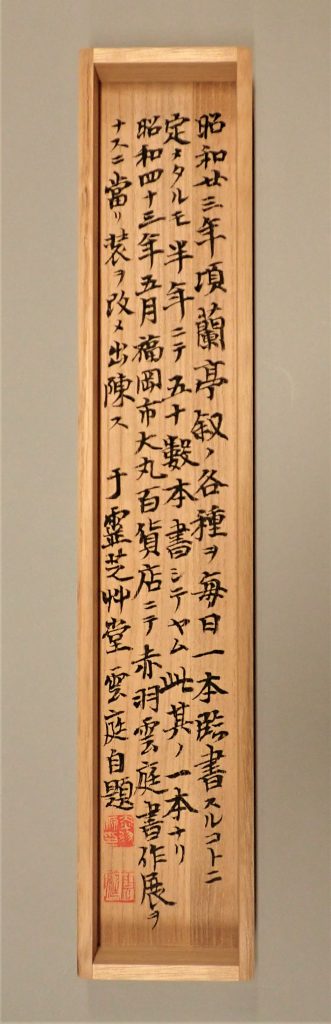 昭和廿三年頃蘭亭叙ノ各種ヲ毎日一本臨書スルコトニ
定メタルモ半年ニテ五十數本書シテヤム此其ノ一本ナリ
昭和四十三年五月福岡市大丸百貨店ニテ赤羽雲庭書作展ヲ
ナスニ當リ装ヲ改メ出陳ス 于靈芝艸堂雲庭自題